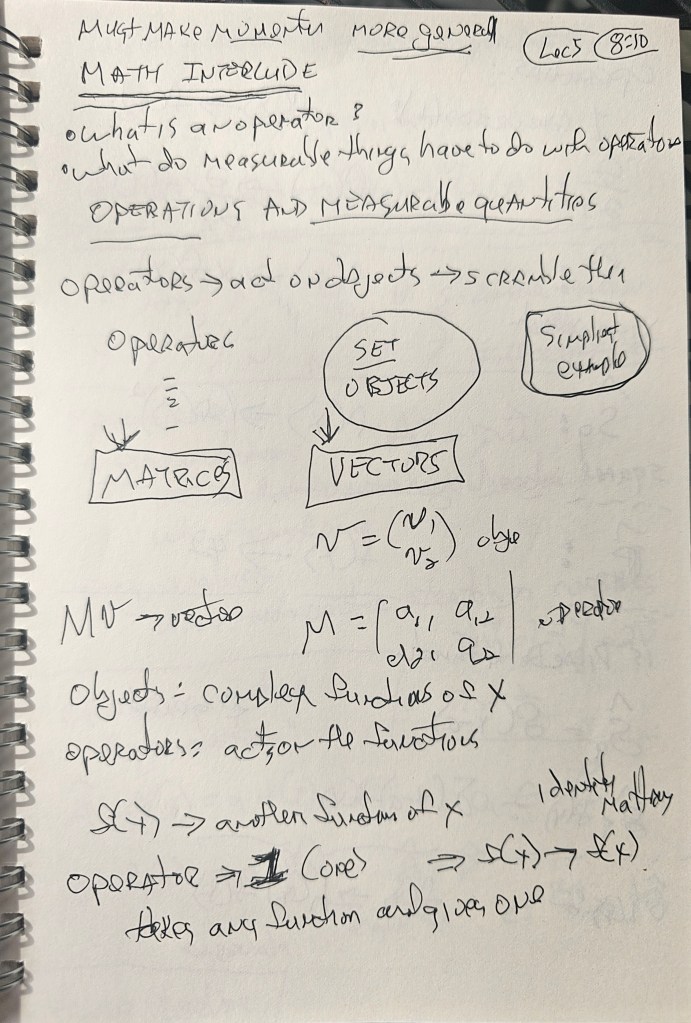 MUST MAKE MOMENTU MORE GENERAL
Lec5 8:10
MATH INTERLUDE
• what is an operator?
• what do measurable things have to do with operators
OPERATIONS AND MEASURABLE QUANTITIES
OPERATORS → act on objects → SCRAMBLE them
Operators
SET
OBJECTS
Simplest
example
MATRICES
VECTORS
v = (v1
v2)
MV → vector
M = [a11 a12
a21 a22] operator
Objects = complex functions of X
operators = acts on the functions
f(x) → another function of X
Identity
OPERATOR → 1 (one) ⇒ f(x) → f(x)
takes any function and gives one